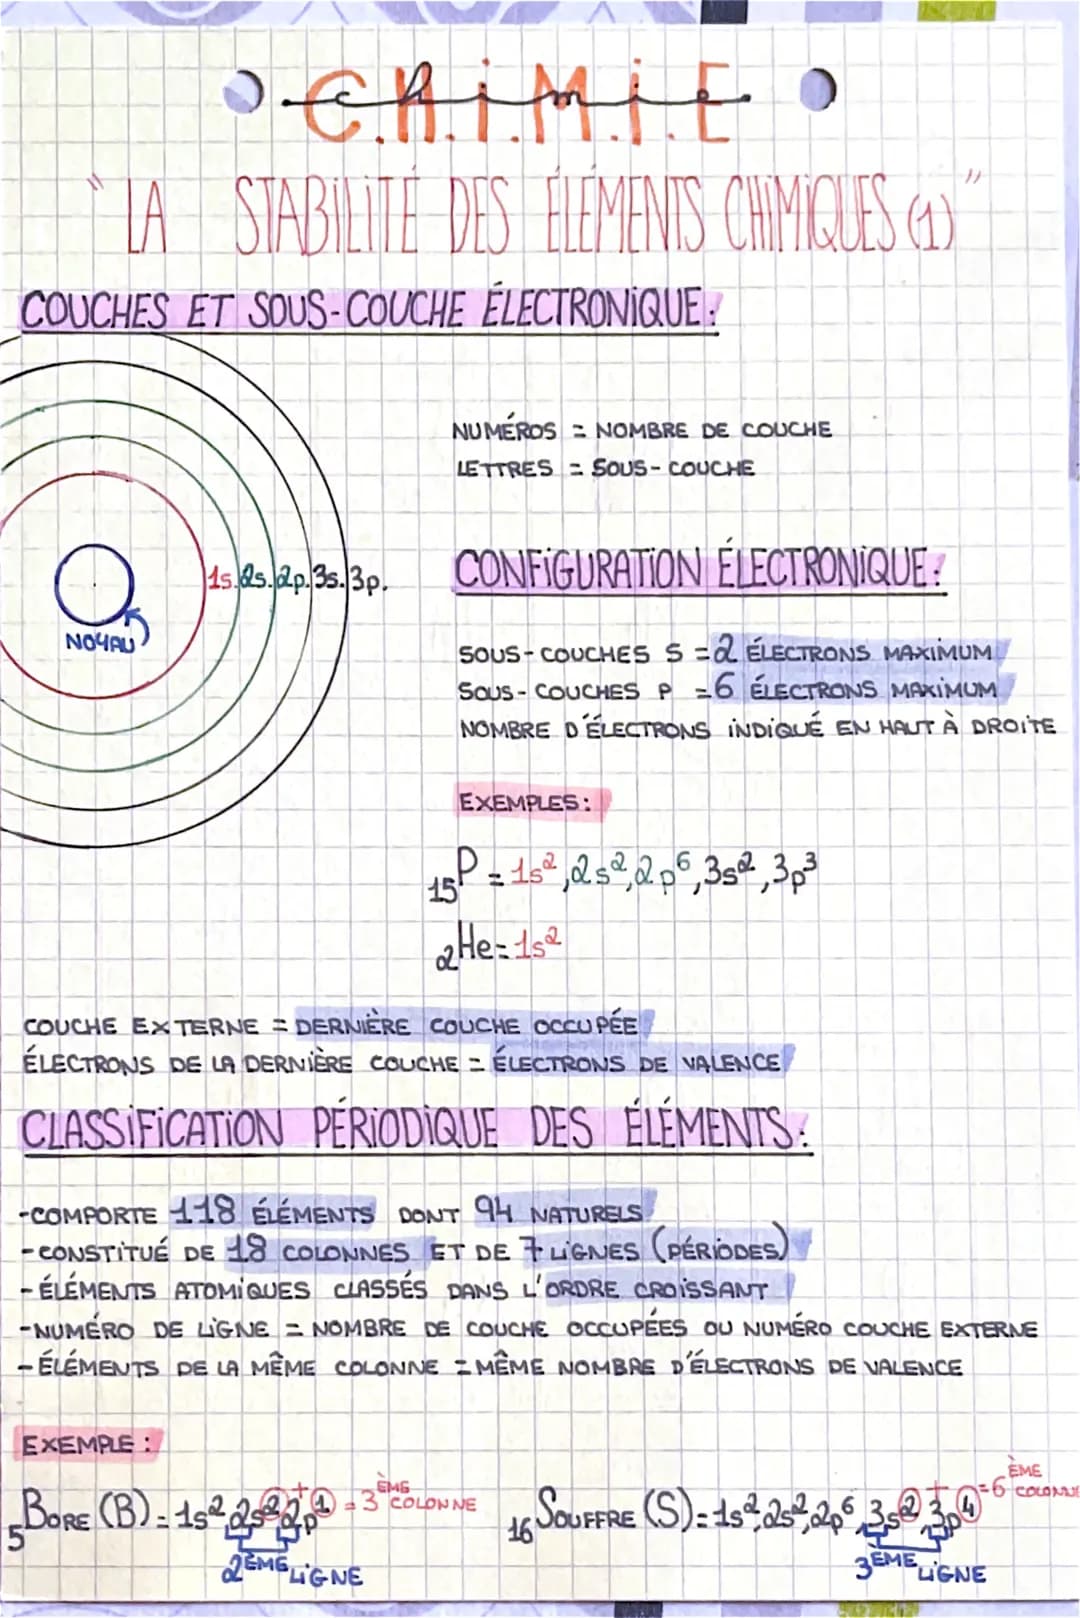 C.H.I.M.I.E
chimie
"LA STABILITÉ DES ÉLÉMENTS CHIMIQUES (1)"
COUCHES ET SOUS-COUCHE ÉLECTRONIQUE:
NUMÉROS = NOMBRE DE COUCHE
LETTRES = SOUS-COUCHE
1s. 2s. 2p. 3s. 3p.
NOYAU
CONFIGURATION ÉLECTRONIQUE:
SOUS-COUCHES S = 2 ÉLECTRONS MAXIMUM
SOUS-COUCHES P = 6 ÉLECTRONS MAXIMUM
NOMBRE D'ÉLECTRONS INDIQUÉ EN HAUT À DROITE
EXEMPLES:
₁₅P = 1s², 2s², 2p⁶, 3s², 3p³
₂He = 1s²
COUCHE EXTERNE = DERNIÈRE COUCHE OCCUPÉE
ÉLECTRONS DE LA DERNIÈRE COUCHE = ÉLECTRONS DE VALENCE
CLASSIFICATION PÉRIODIQUE DES ÉLÉMENTS:
-COMPORTE 118 ÉLÉMENTS DONT 94 NATURELS
-CONSTITUÉ DE 18 COLONNES ET DE 7 LIGNES (PÉRIODES)
-ÉLÉMENTS ATOMIQUES CLASSÉS DANS L'ORDRE CROISSANT
-NUMÉRO DE LIGNE = NOMBRE DE COUCHE OCCUPÉES OU NUMÉRO COUCHE EXTERNE
-ÉLÉMENTS DE LA MÊME COLONNE = MÊME NOMBRE D'ÉLECTRONS DE VALENCE
EXEMPLE:
₅BORE (B) = 1s², 2s² + 2p¹ = 3ÈME COLONNE
2ÈME LIGNE
₁₆SOUFFRE (S) = 1s², 2s², 2p⁶, 3s² + 3p⁴ = 6ÈME COLONNE
3ÈME LIGNE